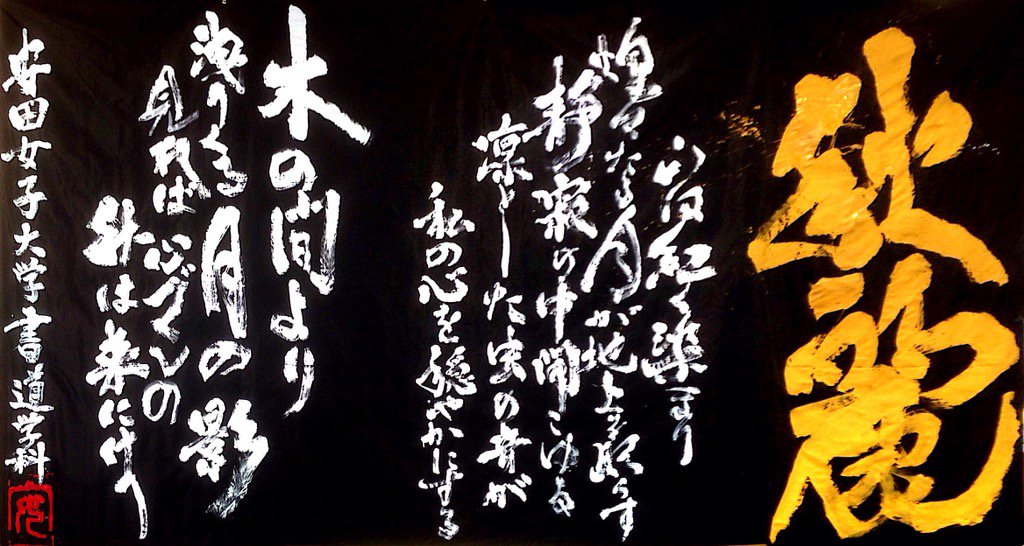 秋麗
紅く染まり
煌々たる月が地上を照らす
静寂の中聞こゆる
凛とした虫の音が
私の心を穏やかにする
木の間より
洩りくる月の影
見れば心づくしの
秋は来にけり
安田女子大学書道学科